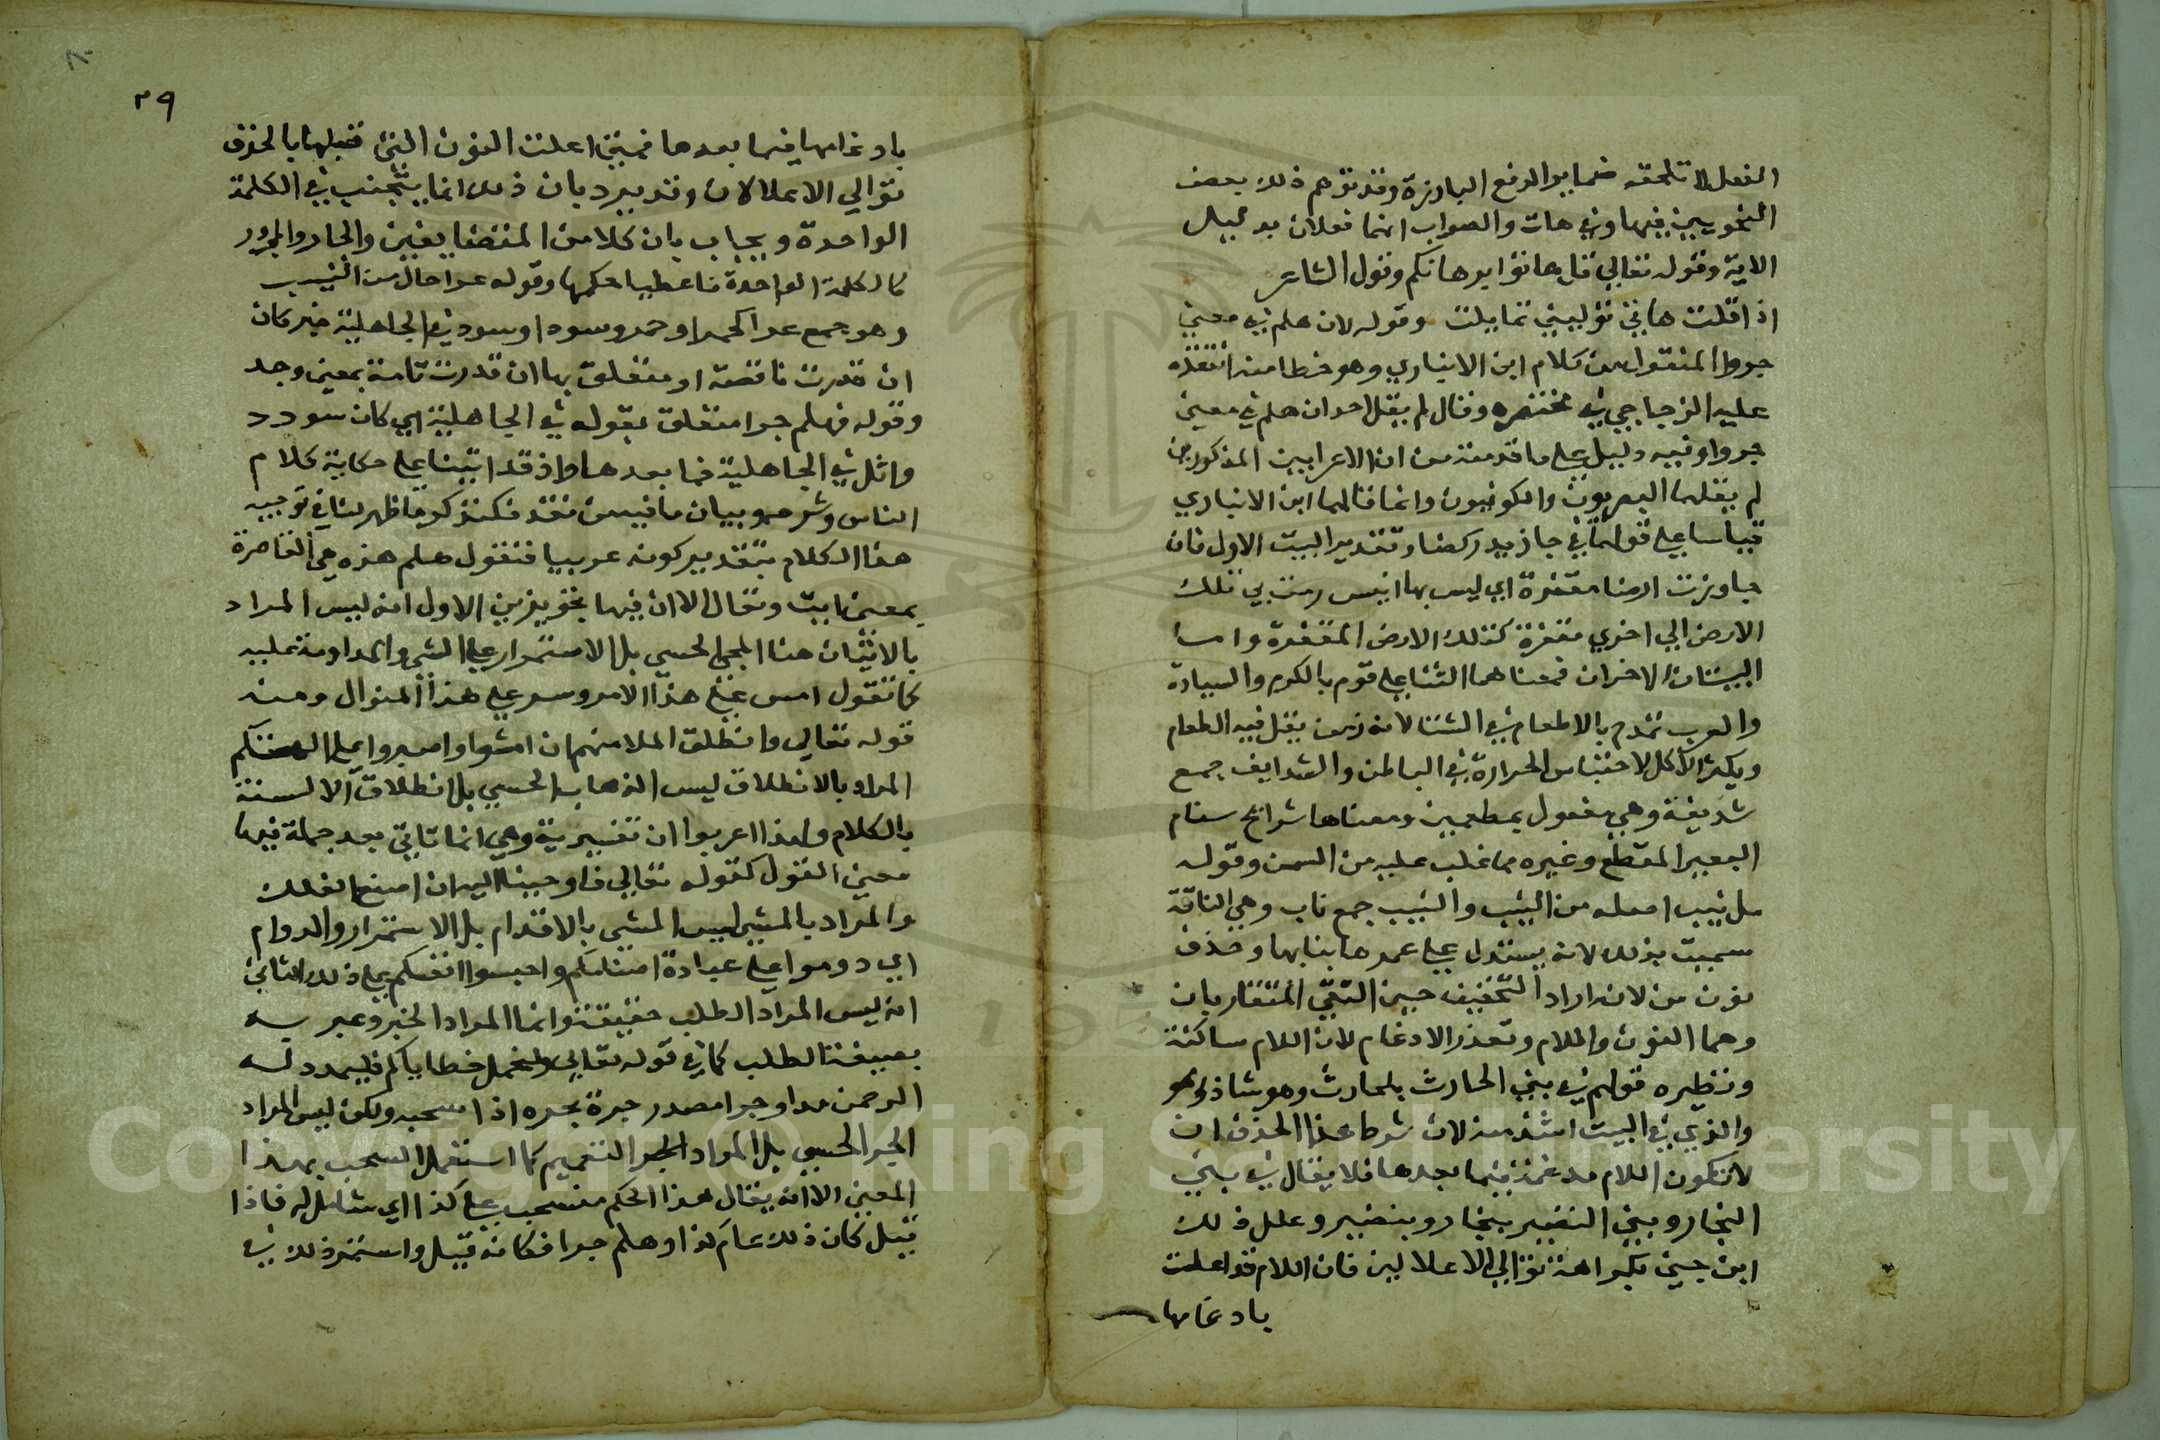 الفعل لا تلحقه ضماير الرفع البارزة وقد توهم ذلك بعض
النحويين فيها وفي هات والصواب انهما فعلان بدليل
الاية وقوله تعالي قل هاتوا برهانكم وقول الشاعر
اذا قلت هاتي نوليني تمايلت وقوله لان هلم في معني
جروا المنقول من كلام ابن الانباري وهو خطا منه انتقده
عليه الزجاجي في مختصره وقال لم يقل احد ان هلم في معني
جروا وفيه دليل علي ما قدمته من ان الاعرابين المذكورين
لم يقلهما البصريون والكوفيون وانما قالهما ابن الانباري
قياسا علي قولهم في جا زيد ركضا وتقدير البيت الاول فان
جاوزت ارضا مقفرة اي ليس بها انيس رمت بي تلك
الارض الي اخري مقفرة كتلك الارض المقفرة واما
البيتان الاخران فمعناهما الثنا علي قوم بالكرم والسيادة
والعرب تمدح بالاطعام في الشتا لانه زمن يقل فيه الطعام
ويكثر الاكل لاحتباس الحرارة في الباطن والشدايف جمع
شديفة وهي مفعول بمطعمين ومعناها شرايح سنام
البعير المقطع وغيره مما غلب عليه من السمن وقوله
ملنيب اصله من النيب والنيب جمع ناب وهي الناقة
سميت بذلك لانه يستدل علي عمرها بنابها وحذف
نون من لانه اراد التخفيف حين التقي المتقاربان
وهما النون واللام وتعذر الادغام لان اللام ساكنة
ونظيره قولهم في بني الحارث بلحارث وهو شاذ
والذي في البيت اشذ منه لان شرط هذا الحذف ان
لا تكون اللام مدغمة فيما بعدها فلا يقال في بني
النجار وبني النضير بنجار وبنضير وعلل ذلك
ابن جني بكراهة توالي الاعلالين فان اللام قد اعلت
بادغامها
٣٩
بادغامها فيما بعدها فمتي اعلت النون التي قبلها بالحذف
توالي الاعلالان وقد يرد بان ذلك انما يتجنب في الكلمة
الواحدة ويجاب بان كلا من المتضايفين والجار والمجرور
كالكلمة الواحدة فاعطيا حكمها وقوله عرا حال من النيب
وهو جمع عرا كحمرا وحمر وسودا وسود في الجاهلية خبر كان
ان قدرت ناقصة او متعلق بها ان قدرت تامة بمعني وجد
وقوله فهلم جرا متعلق بقوله في الجاهلية اي كان سودد
وائل في الجاهلية فما بعدها واذ قد اتينا علي حكاية كلام
الناس وشرحه وبيان ما فيه من نقد فلنذكر ما ظهر لنا في توجيه
هذا الكلام بتقدير كونه عربيا فنقول هلم هذه هي القاصرة
بمعني ايت وتعال الا ان فيها تجوزين الاول انه ليس المراد
بالاتيان هنا المجي الحسي بل الاستمرار علي الشي والمداومة عليه
كما تقول امش علي هذا الامر وسر علي هذا المنوال ومنه
قوله تعالي وانطلق الملا منهم ان امشوا واصبروا علي الهتكم
المراد بالانطلاق ليس الذهاب الحسي بل انطلاق الالسنة
بالكلام ولهذا اعربوا ان تفسيرية وهي انما تاتي بعد جملة فيها
معني القول كقوله تعالي فاوحينا اليه ان اصنع الفلك
والمراد بالمشي ليس المشي بالاقدام بل الاستمرار والدوام
اي دوموا علي عبادة اصنامكم واحبسوا انفسكم علي ذلك الثاني
انه ليس المراد الطلب حقيقة وانما المراد الخبر وعبر به
بصيغة الطلب كما في قوله تعالي ولنحمل خطاياكم فليمدد له
الرحمن مدا وجرا مصدر جره يجره اذا سحبه ولكن ليس المراد
الجر الحسي بل المراد الجر التعميم كما استعمل السحب بهذا
المعني الا انه يقال هذا الحكم منسحب علي كذا اي شامل له فاذا
قيل كان ذلك عام كذا وهلم جرا فكانه قيل واستمر ذلك في
Copyright © King Saud University